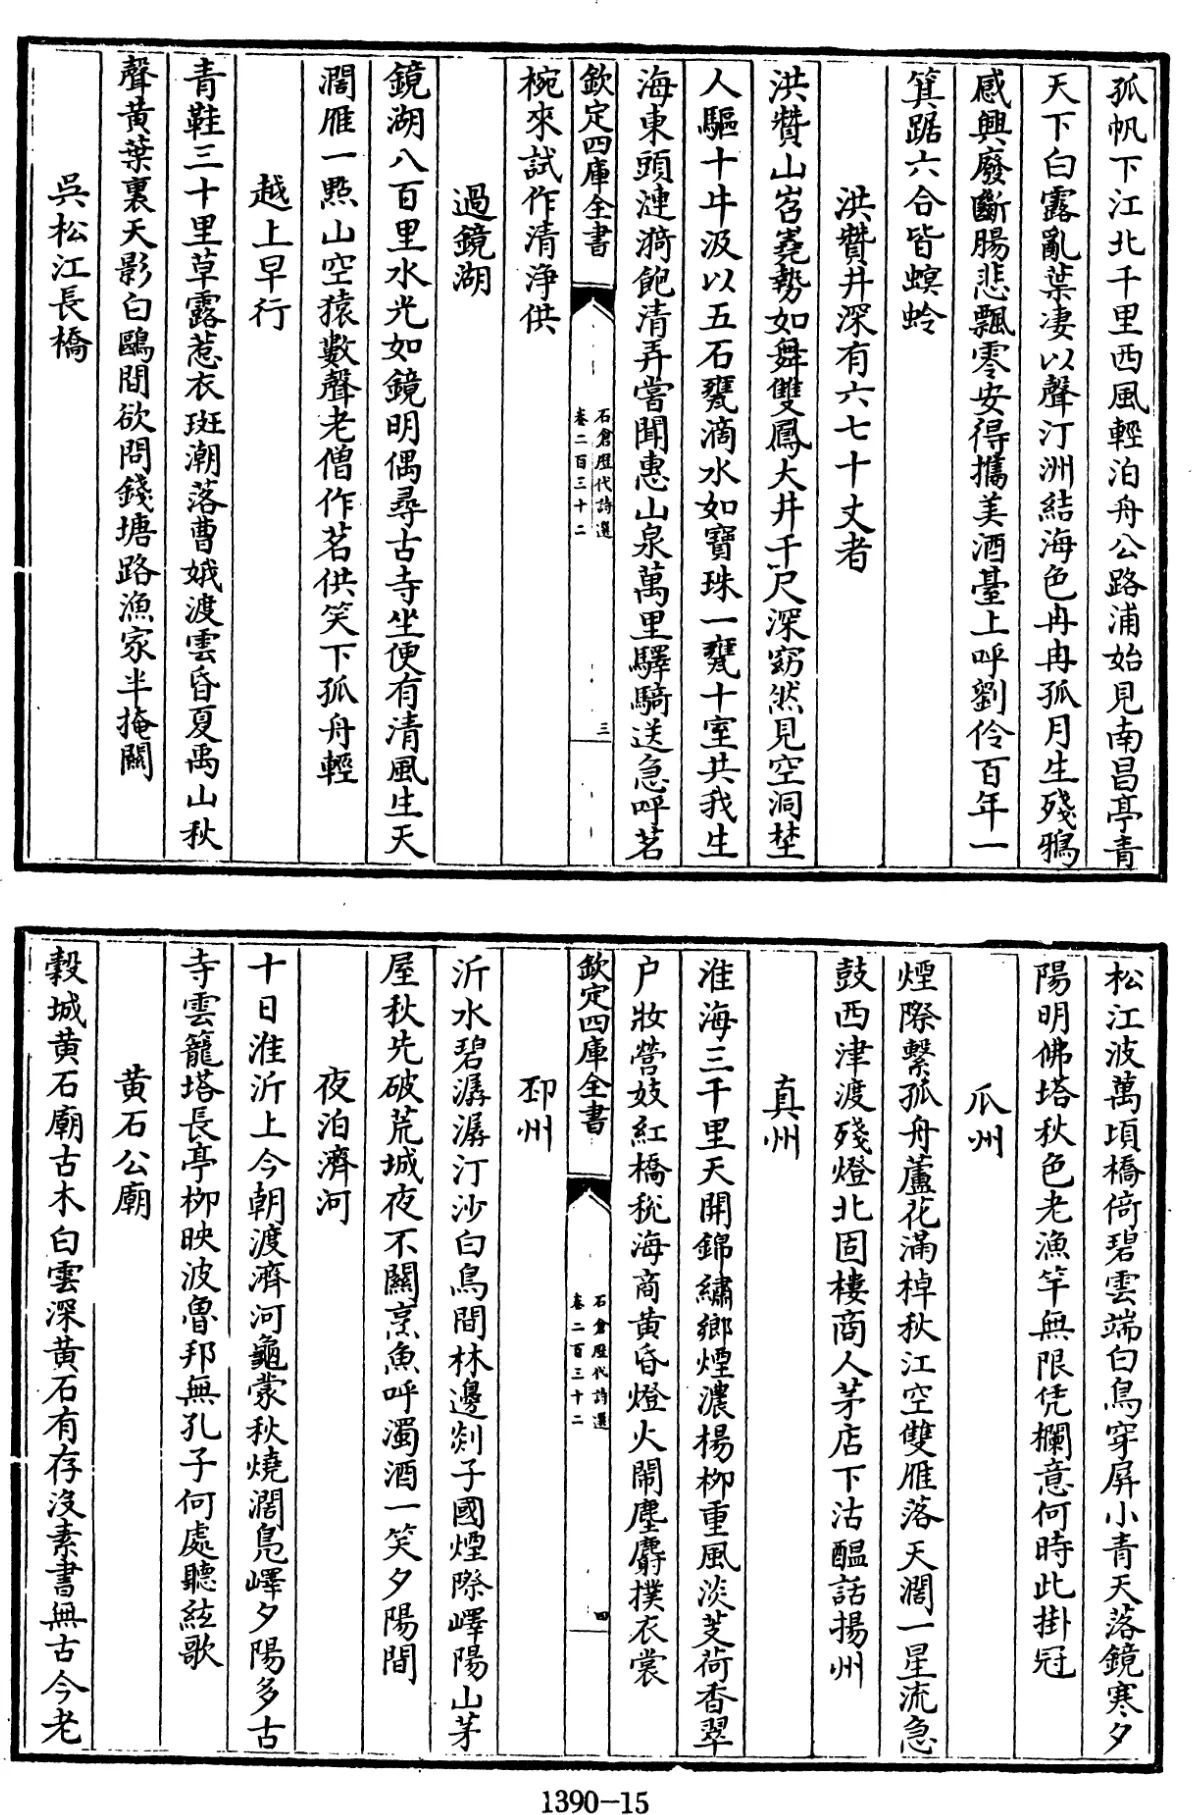 孤帆下江北千里西風輕泊舟公路浦始見南昌亭青
天下白露亂葉凄以聲汀洲結海色冉冉孤月生殘鴉
感興廢斷腸悲飄零安得攜美酒臺上呼劉伶百年一
箕踞六合皆螟蛉
洪贊井深有六七十丈者
洪贊山岧嶤勢如舞雙鳳大井千尺深窈然見空洞埜
人驅十牛汲以五石甕滴水如寶珠一甕十室共我生
海東頭漣漪飽清弄嘗聞惠山泉萬里驛騎送急呼茗
欽定四庫全書
石倉歷代詩選
卷二百三十二
三
椀來試作清淨供
過鏡湖
鏡湖八百里水光如鏡明偶尋古寺坐便有清風生天
濶雁一點山空猿數聲老僧作茗供笑下孤舟輕
越上早行
青鞋三十里草露惹衣斑潮落曹娥渡雲昏夏禹山秋
聲黄葉裏天影白鷗間欲問錢塘路漁家半掩關
吳松江長橋
松江波萬頃橋倚碧雲端白鳥穿屏小青天落鏡寒夕
陽明佛塔秋色老漁竿無限凭欄意何時此掛冠
瓜州
煙際繫孤舟蘆花滿棹秋江空雙雁落天濶一星流急
鼓西津渡殘燈北固樓商人茅店下沽醖話揚州
真州
淮海三千里天開錦繡鄉煙濃楊柳重風淡芰荷香翠
户妝營妓紅橋税海商黄昏燈火鬧塵麝撲衣裳
欽定四庫全書
石倉歷代詩選
卷二百三十二
四
邳州
沂水碧潺潺汀沙白鳥間林邊剡子國煙際嶧陽山茅
屋秋先破荒城夜不關烹魚呼濁酒一笑夕陽間
夜泊濟河
十日淮沂上今朝渡濟河龜蒙秋燒濶鳬嶧夕陽多古
寺雲籠塔長亭柳映波魯邦無孔子何處聽絃歌
黄石公廟
穀城黄石廟古木白雲深黄石有存沒素書無古今老
1390-15